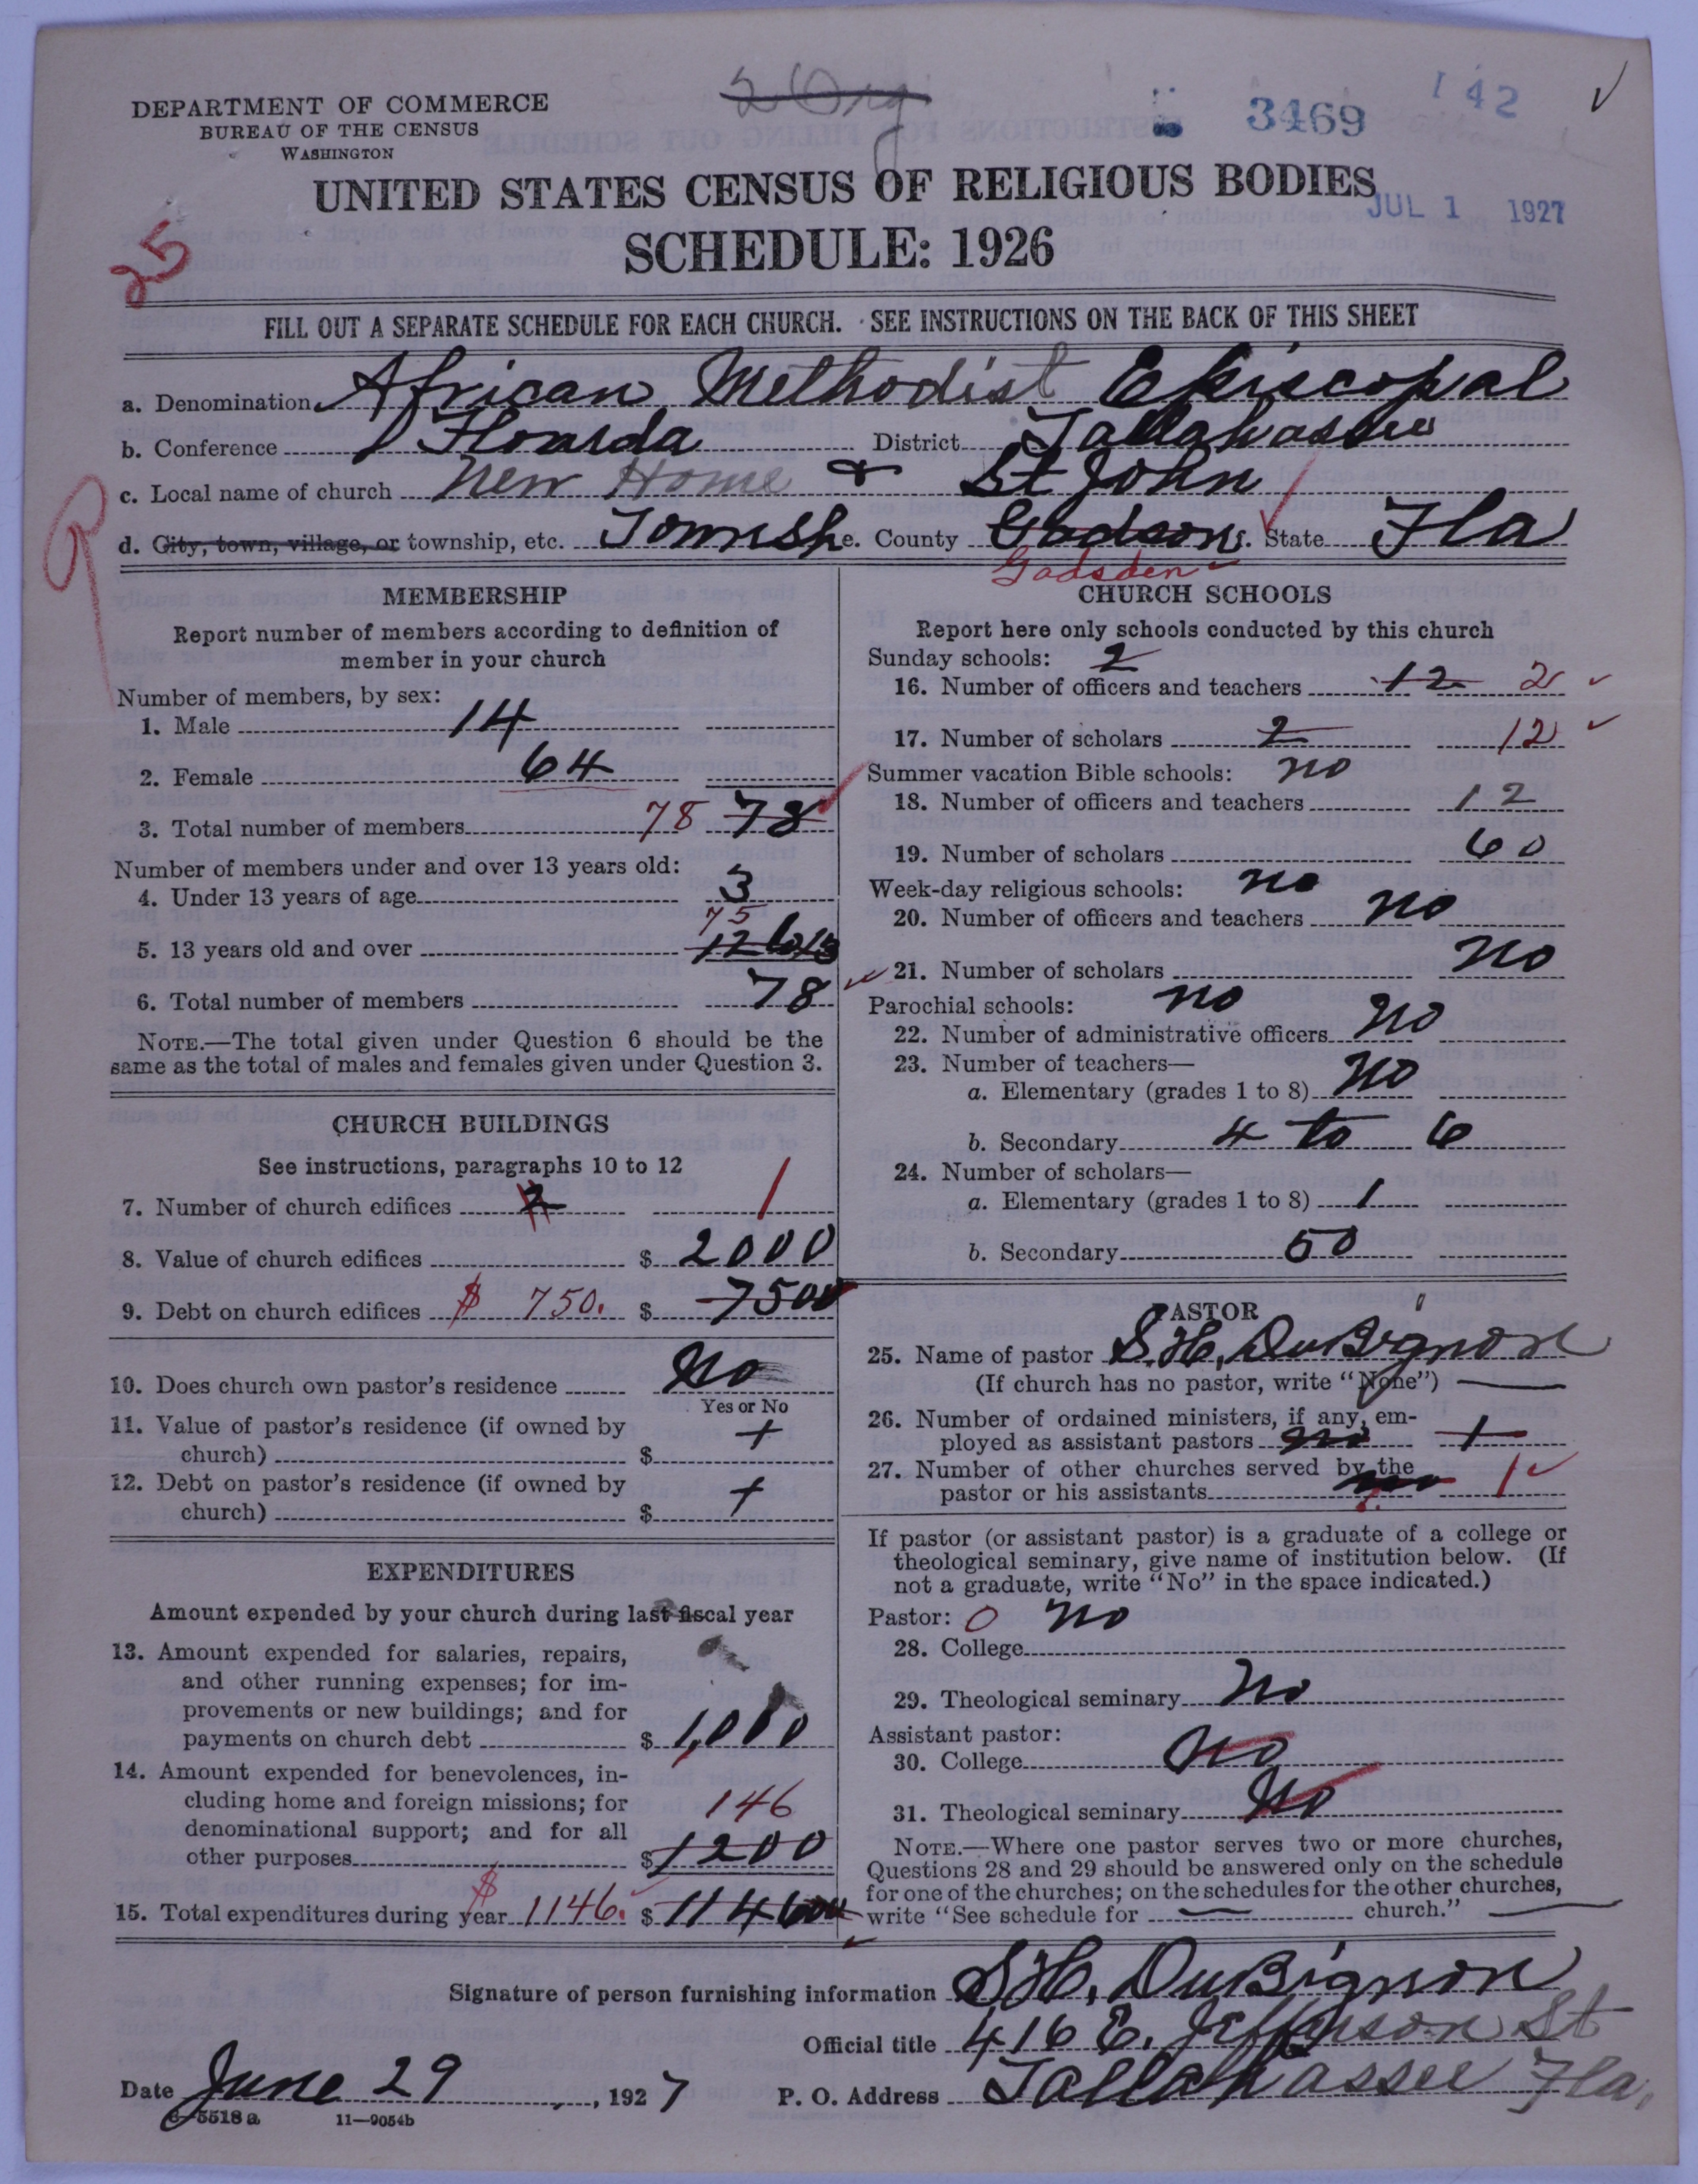 2 Org
DEPARTMENT OF COMMERCE
BUREAU OF THE CENSUS
WASHINGTON
3469
142
UNITED STATES CENSUS OF RELIGIOUS BODIES
JUL 1 1927
SCHEDULE: 1926
25
FILL OUT A SEPARATE SCHEDULE FOR EACH CHURCH. SEE INSTRUCTIONS ON THE BACK OF THIS SHEET
a. Denomination African Methodist Episcopal
b. Conference Flourda District Tallahassee
c. Local name of church New Home & St John
d. City, town, village, or township, etc. Townsh e. County Gadson f. State Fla
Gadsden
MEMBERSHIP
Report number of members according to definition of
member in your church
Number of members, by sex:
1. Male 14
2. Female 64
3. Total number of members 78 78
Number of members under and over 13 years old:
4. Under 13 years of age 3
75
5. 13 years old and over 12 to 13
6. Total number of members 78
NOTE.—The total given under Question 6 should be the
same as the total of males and females given under Question 3.
CHURCH BUILDINGS
See instructions, paragraphs 10 to 12
7. Number of church edifices 2 1
8. Value of church edifices $ 2000
9. Debt on church edifices $ 750. $ 7500
10. Does church own pastor's residence No
Yes or No
11. Value of pastor's residence (if owned by
church) $ +
12. Debt on pastor's residence (if owned by
church) $ +
EXPENDITURES
Amount expended by your church during last fiscal year
13. Amount expended for salaries, repairs,
and other running expenses; for im-
provements or new buildings; and for
payments on church debt $ 1,000
14. Amount expended for benevolences, in-
cluding home and foreign missions; for
denominational support; and for all
146
other purposes $ 1200
15. Total expenditures during year $ 1146. $ 1146
CHURCH SCHOOLS
Report here only schools conducted by this church
Sunday schools: 2
16. Number of officers and teachers 12 2
17. Number of scholars 2 12
Summer vacation Bible schools: no
18. Number of officers and teachers 12
19. Number of scholars 60
Week-day religious schools: no
20. Number of officers and teachers no
21. Number of scholars no
Parochial schools: no
22. Number of administrative officers no
23. Number of teachers—
a. Elementary (grades 1 to 8) no
b. Secondary 4 to 6
24. Number of scholars—
a. Elementary (grades 1 to 8) 1
b. Secondary 50
PASTOR
25. Name of pastor S. H. DuBignon
(If church has no pastor, write "None")
26. Number of ordained ministers, if any, em-
ployed as assistant pastors no +
27. Number of other churches served by the
pastor or his assistants no 1
If pastor (or assistant pastor) is a graduate of a college or
theological seminary, give name of institution below. (If
not a graduate, write "No" in the space indicated.)
Pastor: 0 no
28. College
29. Theological seminary No
Assistant pastor:
30. College No
31. Theological seminary No
NOTE.—Where one pastor serves two or more churches,
Questions 28 and 29 should be answered only on the schedule
for one of the churches; on the schedules for the other churches,
write "See schedule for church."
Signature of person furnishing information S. H. DuBignon
Official title 416 E. Jefferson St
Date June 29, 1927 P. O. Address Tallahassee Fla.
8—5518 a 11—9054b